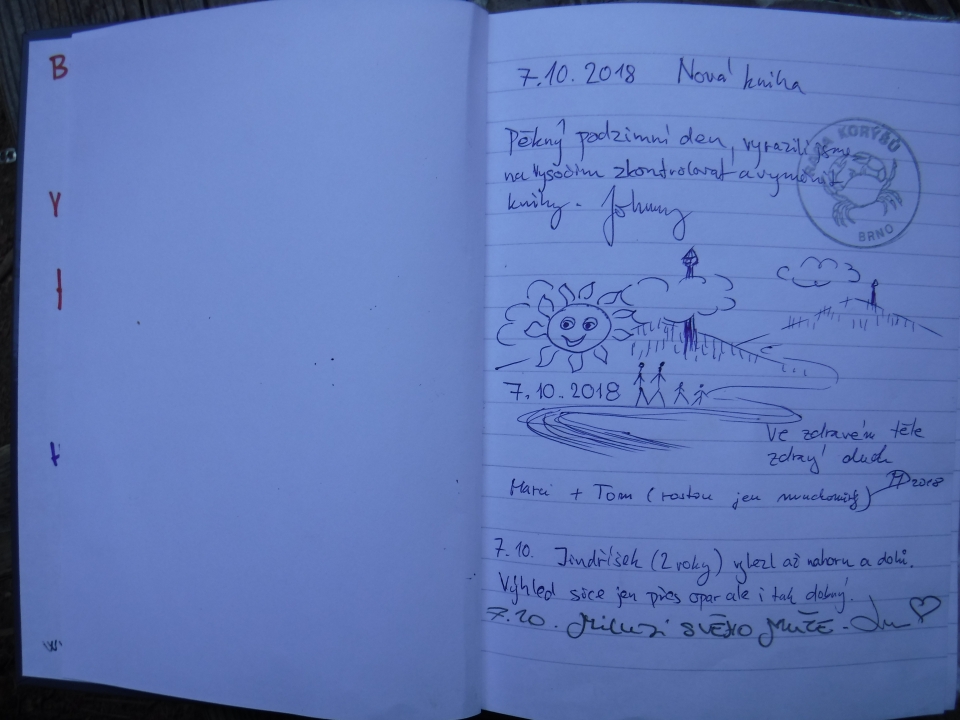 B
Y
7.10. 2018 Nová kniha
Pěkný podzimní den, vyrazili jsme
na Vysočinu zkontrolovat a vyměnit
knihy. Johnny
KORÝŠŮ
BRNO
7.10.2018
Ve zdravém těle
zdravý duch
Marci + Tom (rostou jen muchomůrky)
2018
7.10. Jindříšek (2 roky) vylezl až nahoru a dolů.
Výhled sice jen přes opar ale i tak dobrý.
7.10. Miluji svého muže -